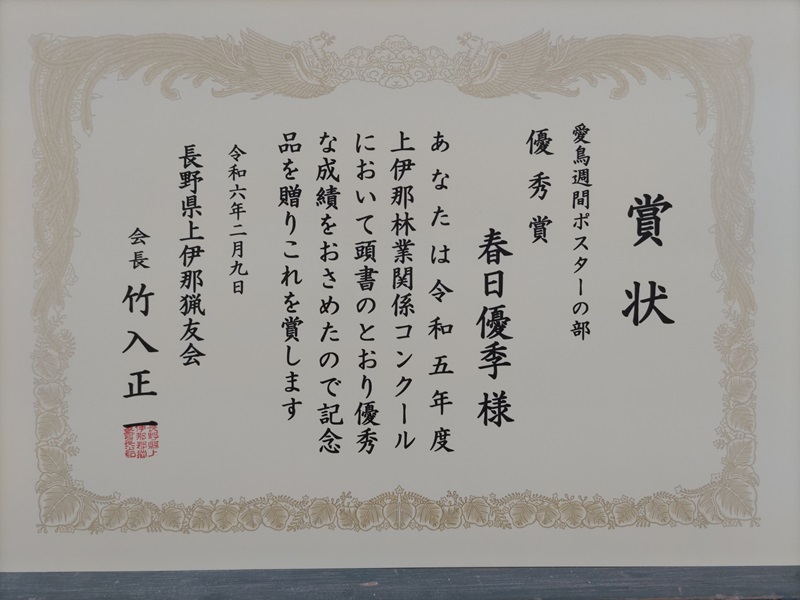 賞状
愛鳥週間ポスターの部
優秀賞
春日優季様
あなたは令和五年度
上伊那林業関係コンクール
において頭書のとおり優秀
な成績をおさめたので記念
品を贈りこれを賞します
令和六年二月九日
長野県上伊那猟友会
会長 竹入正一